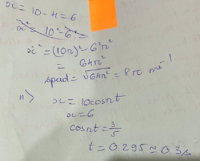 x = 10 - 4 = 6
x² = 10² - 6²
ẋ² = (10n)² - 6²n²
= 64n²
speed = √64n² = 8n ms⁻¹
ii) x = 10cosnt
x = 6
cosnt = 3/5
t = 0.295 ≈ 0.3s